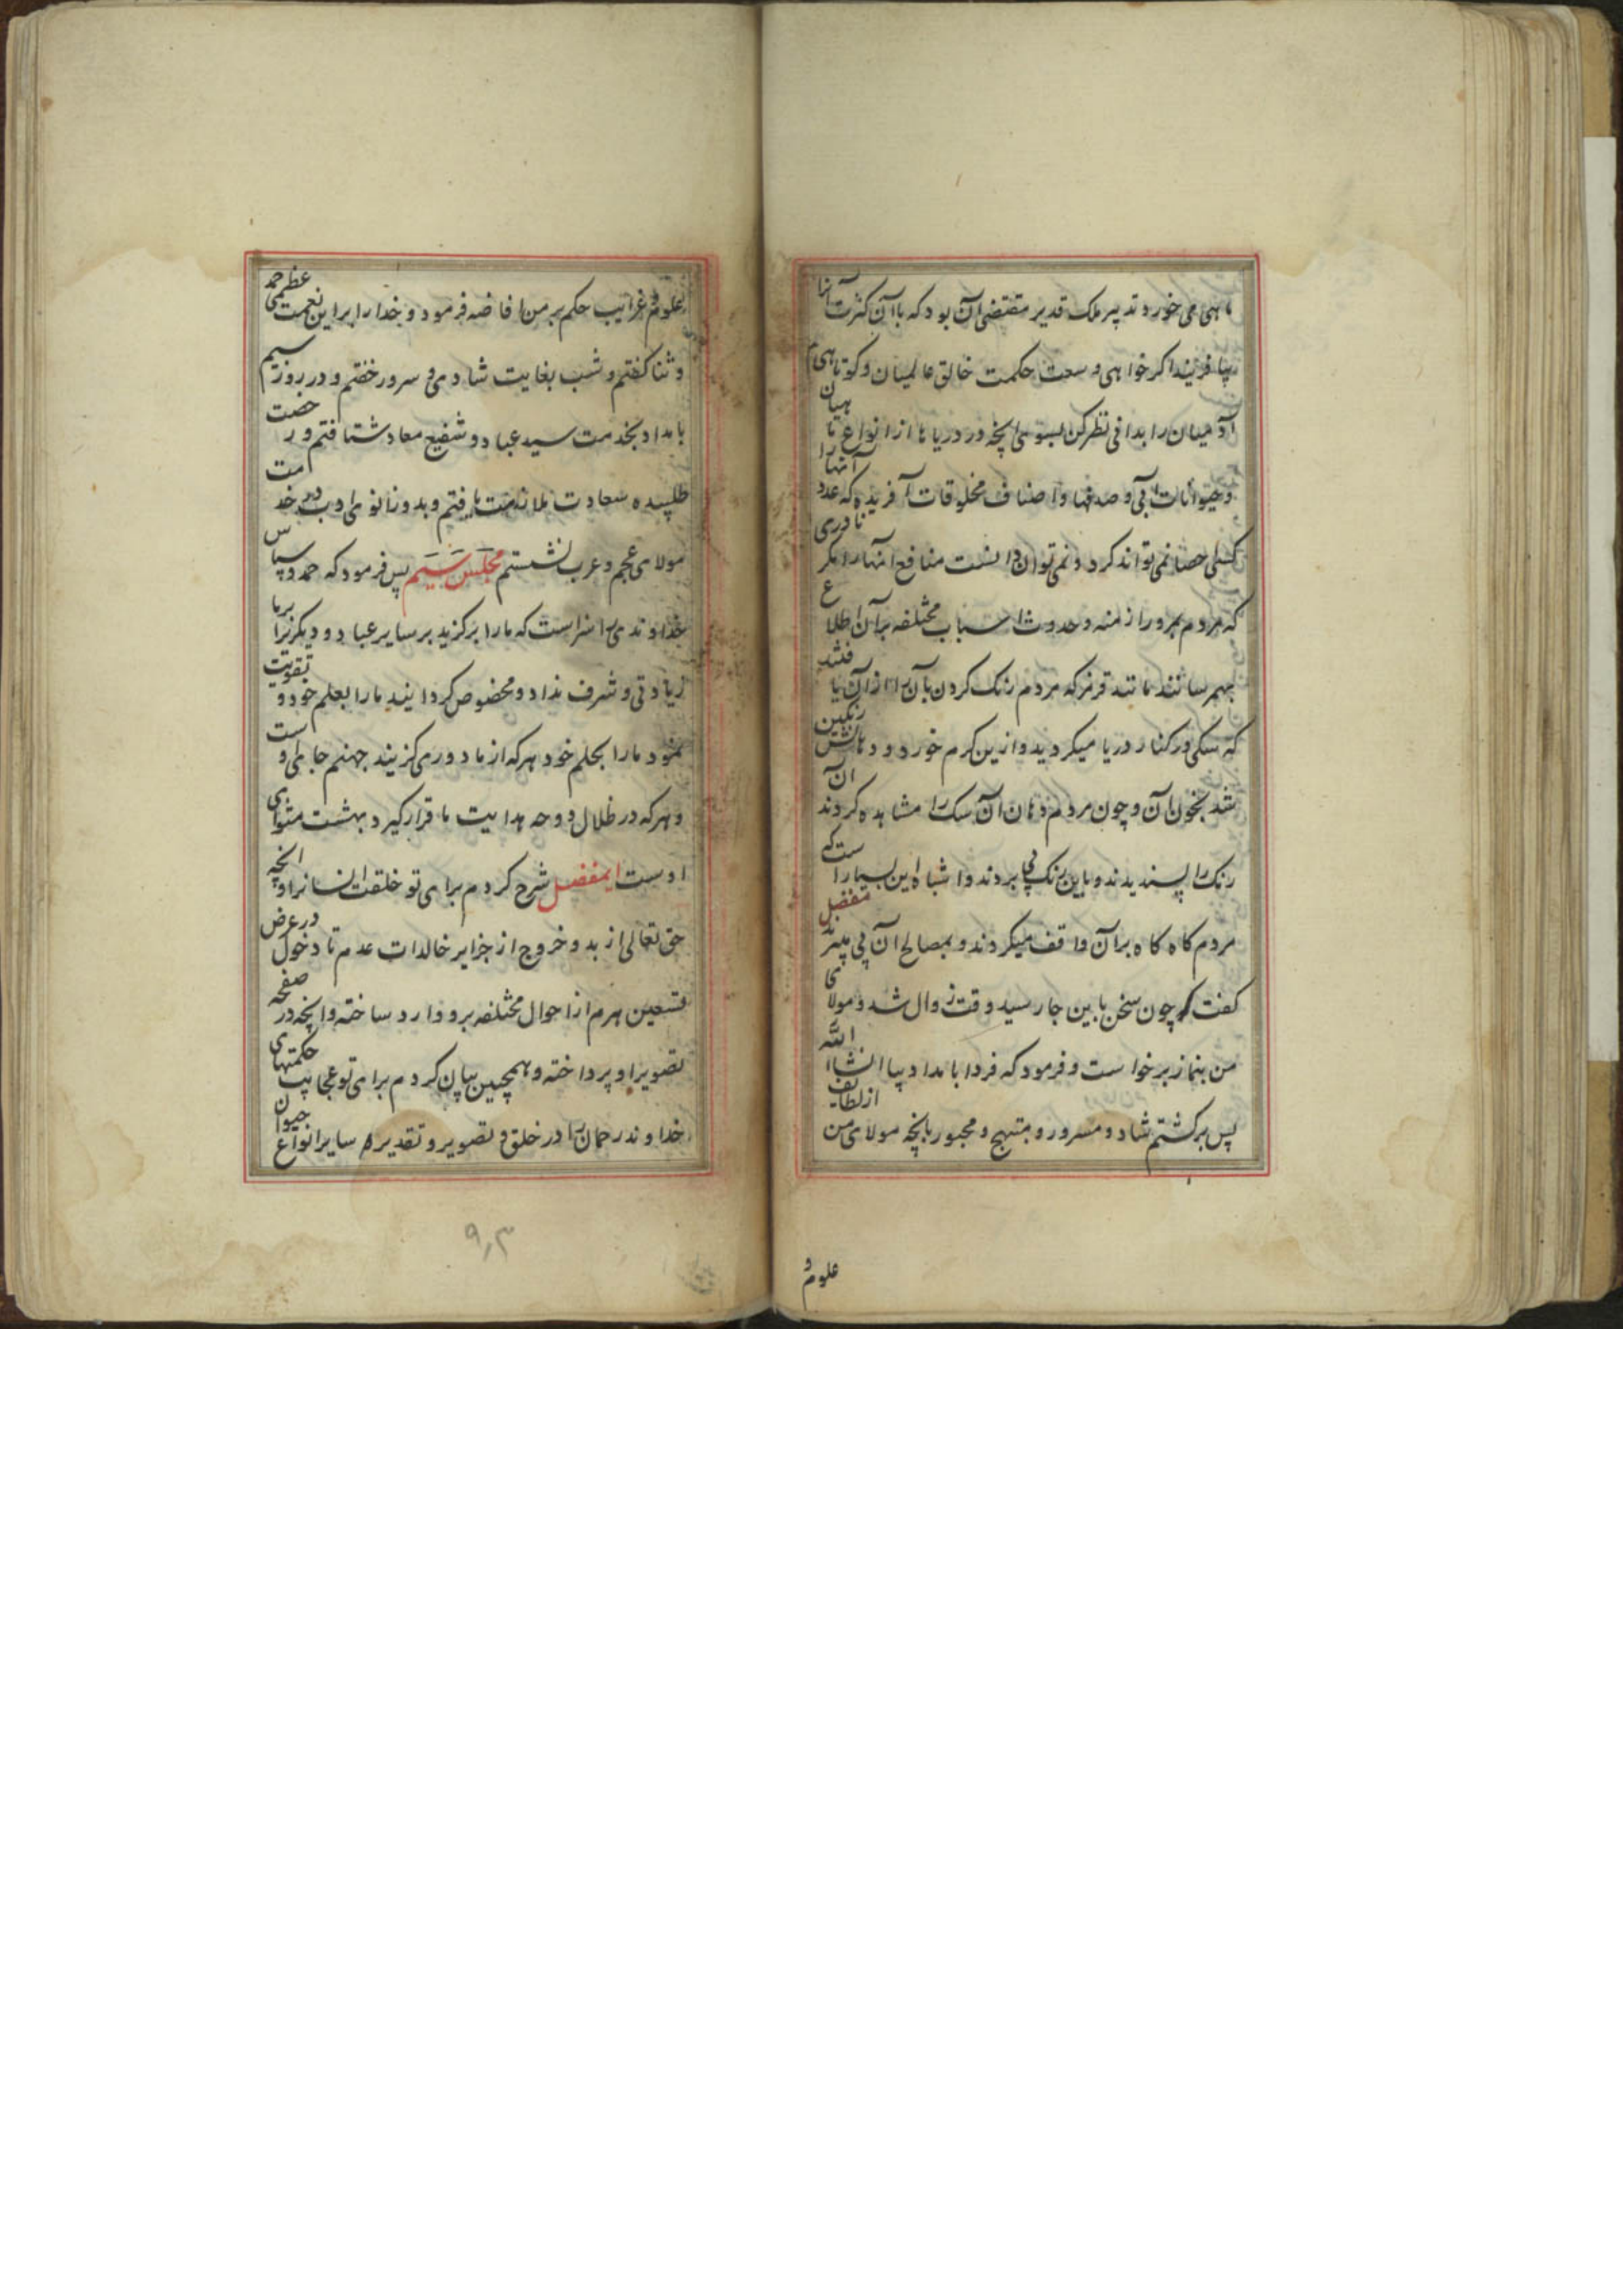 ماهی می خورد تدبیر ملک قدیر مقتضی آن بود که باآن کثرت آنها
بیافریند اکر خواهی وسعت حکمت خالق عالمیان و کوتاهی
آدمیان را بدانی نظر کن بسوی آنچه در دریاها از انواع ماهیان
و حیوانات آبی و صدفها و اصناف مخلوقات آفریده که عدد آنها را
کسی احصا نمی تواند کرد و نمی توان دانست منافع آنها را مکر نادری
که مردم بمرور ازمنه و حدوث اسباب مختلفه بر آن اطلاع
بهم رسانند مانند قرمز که مردم رنک کردن بآن را از آن یافتند
که سکی در کنار دریا میکردید و ازین کرم خورد و دهانش رنکین
شد بخون آن و چون مردم دهان آن سک را مشاهده کردند آن
رنک را پسندیدند و باین رنک پی بردند و اشباه این بسیار است که
مردم کاه کاه بر آن واقف میکردند و بمصالح آن پی میبرند مفضل
کفت که چون سخن باین جا رسید وقت زوال شد و مولای
من بنماز برخواست و فرمود که فردا بامداد بیا انشاء الله
پس برکشتم شاد و مسرور و مبتهج و محبور بآنچه مولای من از لطایف
علوم و
علوم و غرایب حکم بر من افاضه فرمود و خدا را بر این نعمت عظمی حمد
و ثنا کفتم و شب بغایت شادی و سرور خفتم و در روز سیم
بامداد بخدمت سید عباد و شفیع معاد شتافتم و رخصت
طلبیده سعادت ملازمت یافتم و بدو زانوی ادب در خدمت
مولای عجم و عرب نشستم مجلس سیم پس فرمود که حمد و سپاس
خداوندی را سزاست که ما را برکزید بر سایر عباد و دیکری را بر ما
زیادتی و شرف نداد و مخصوص کردانید ما را بعلم خود و تقویت
نمود ما را بحلم خود هر که از ما دوری کزیند جهنم جای اوست
و هر که در ظلال دوحه هدایت ما قرار کیرد بهشت مثوای
اوست ایمفضل شرح کردم برای تو خلقت انسانرا و آنچه
حق تعالی از بدو خروج از جزایر خالدات عدم تا دخول در عرض
تسعین هرم از احوال مختلفه برو وارد ساخته و آنچه در صفحه
تصویر او پرداخته و همچنین بیان کردم برای تو عجایب حکمتهای
خداوند رحمان را در خلق و تصویر و تقدیر سایر انواع حیوان
۹۰۳